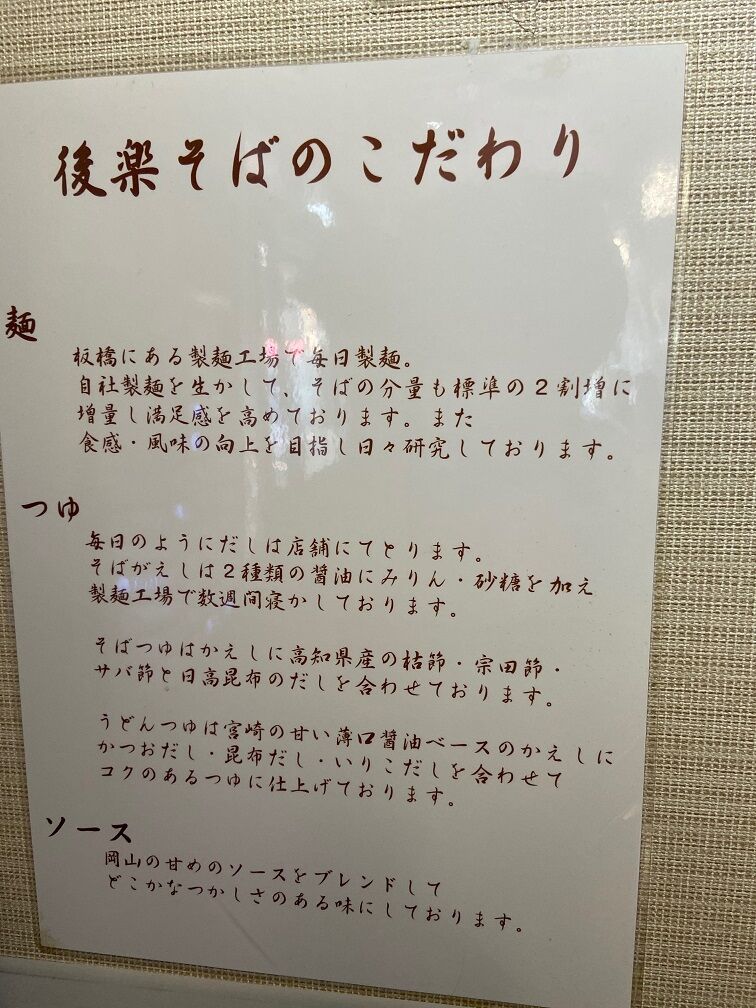 後楽そばのこだわり
麺
板橋にある製麺工場で毎日製麺。
自社製麺を生かして、そばの分量も標準の2割増に
増量し満足感を高めております。また
食感・風味の向上を目指し日々研究しております。
つゆ
毎日のようにだしは店舗にてとります。
そばがえしは2種類の醤油にみりん・砂糖を加え
製麺工場で数週間寝かしております。
そばつゆはかえしに高知県産の枯節・宗田節・
サバ節と日高昆布のだしを合わせております。
うどんつゆは宮崎の甘い薄口醤油ベースのかえしに
かつおだし・昆布だし・いりこだしを合わせて
コクのあるつゆに仕上げております。
ソース
岡山の甘めのソースをブレンドして
どこかなつかしさのある味にしております。